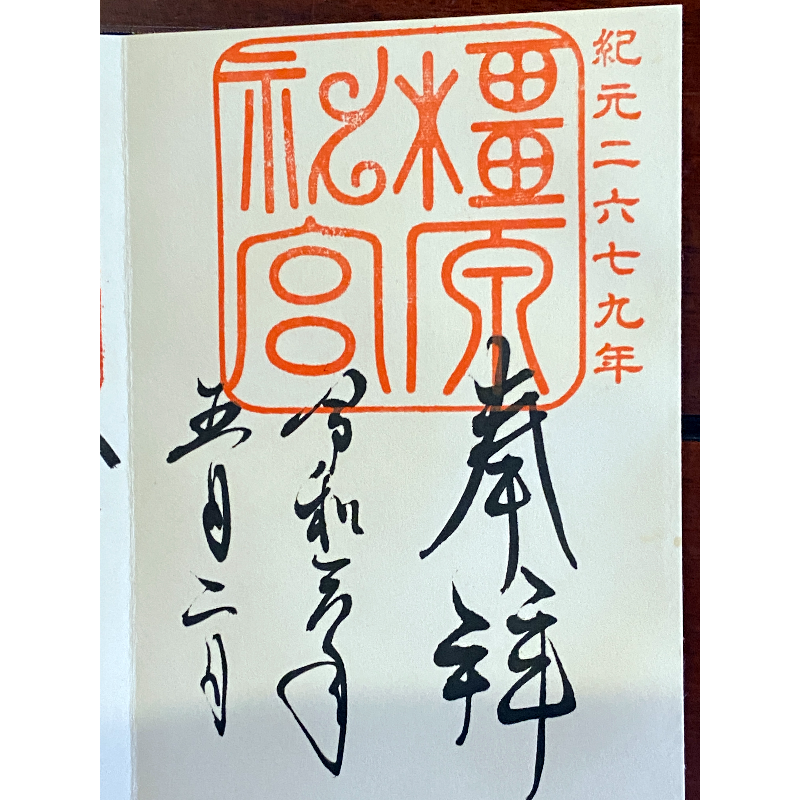 紀元二六七九年
橿原
神宮
奉拝
令和元年
五月二日